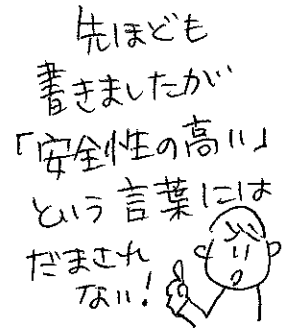 先ほども
書きましたが
「安全性の高い」
という言葉には
だまされ
ない！